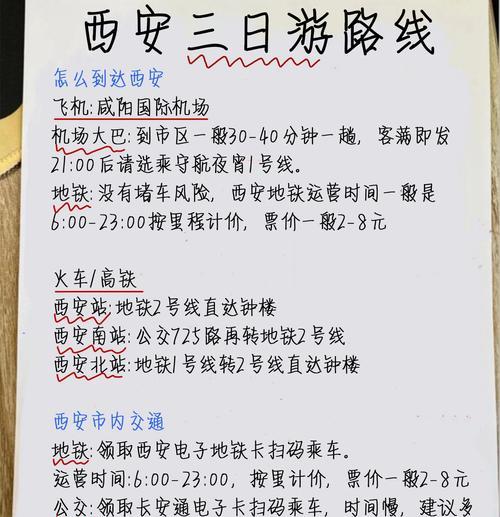 西安三日游路线
怎么到达西安
飞机:咸阳国际机场
机场大巴:到市区一般30-40分钟一趟，客满即发
21:00后请选乘守航夜宵1号线。
地铁:没有堵车风险，西安地铁运营时间一般是
6:00-23:00按里程计价，票价一般2-8元
火车/高铁
西安站:地铁2号线直达钟楼
西安南站:公交725路再转地铁2号线
西安北站:地铁1号线转2号线直达钟楼
西安市内交通
地铁:领取西安电子地铁卡扫码乘车。
运营时间:6:00-23:00，按里计价，票价一般2-8元
公交:领取长安通电子卡扫码乘车，时间慢，建议多